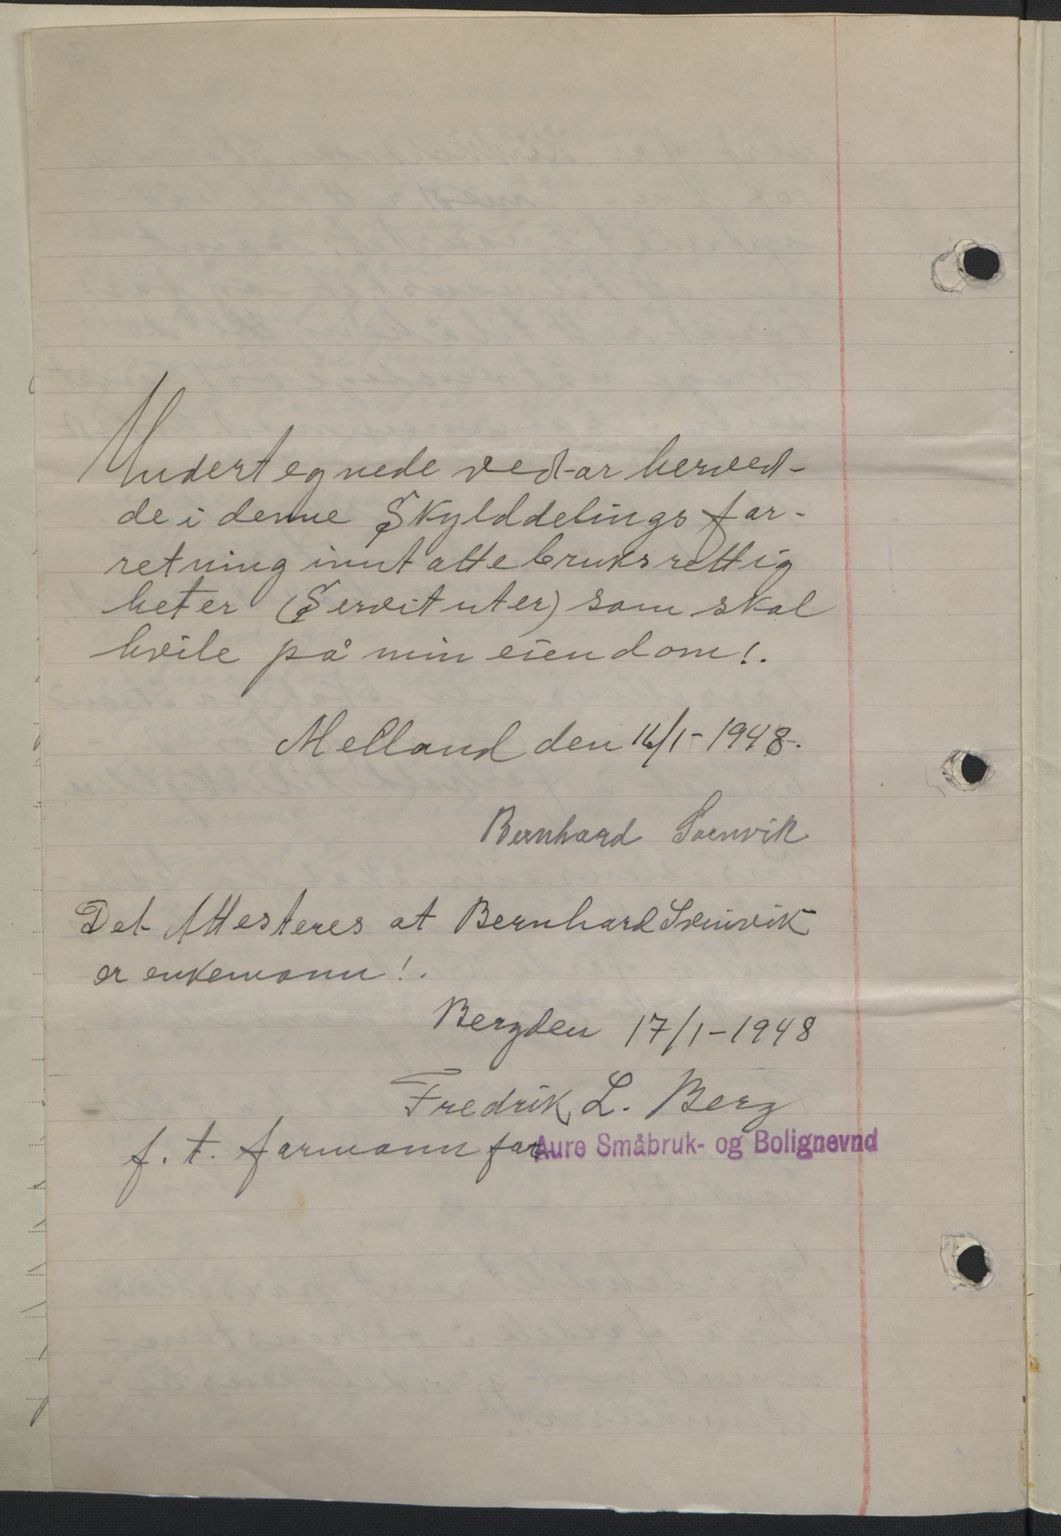 Undertegnede ved-ar herved-
de i denne Skylddelings for-
retning inntatte bruksrettig
heter (Servituter) som skal
hvile på min eiendom!.
Melland den 16/1-1948-.
Bernhard Svenvik
Det Attesteres at Bernhard Svinvik
er enkemann!.
Berg den 17/1-1948
Fredrik L. Berg
f. t. formann for Aure Småbruk- og Bolignevnd